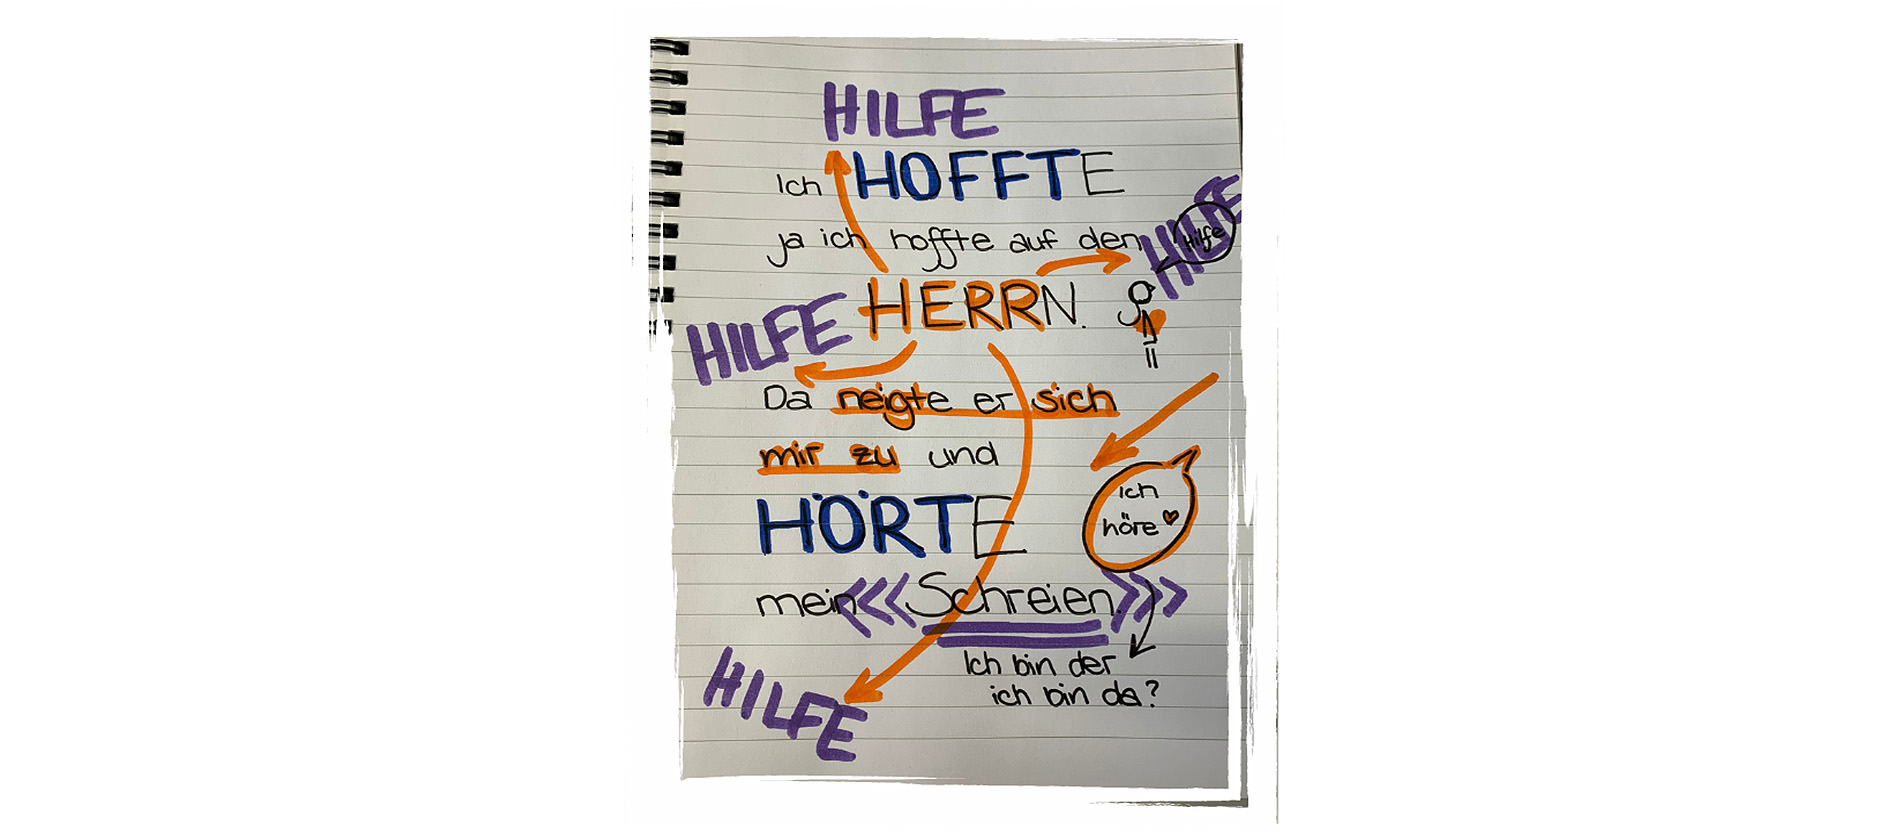 HILFE
Ich HOFFTE
ja ich hoffte auf den
HILFE
Hilfe
HERRN.
HILFE
Da neigte er sich
mir zu und
Ich
höre
HÖRTE
mein Schreien.
Ich bin der
ich bin da?
HILFE